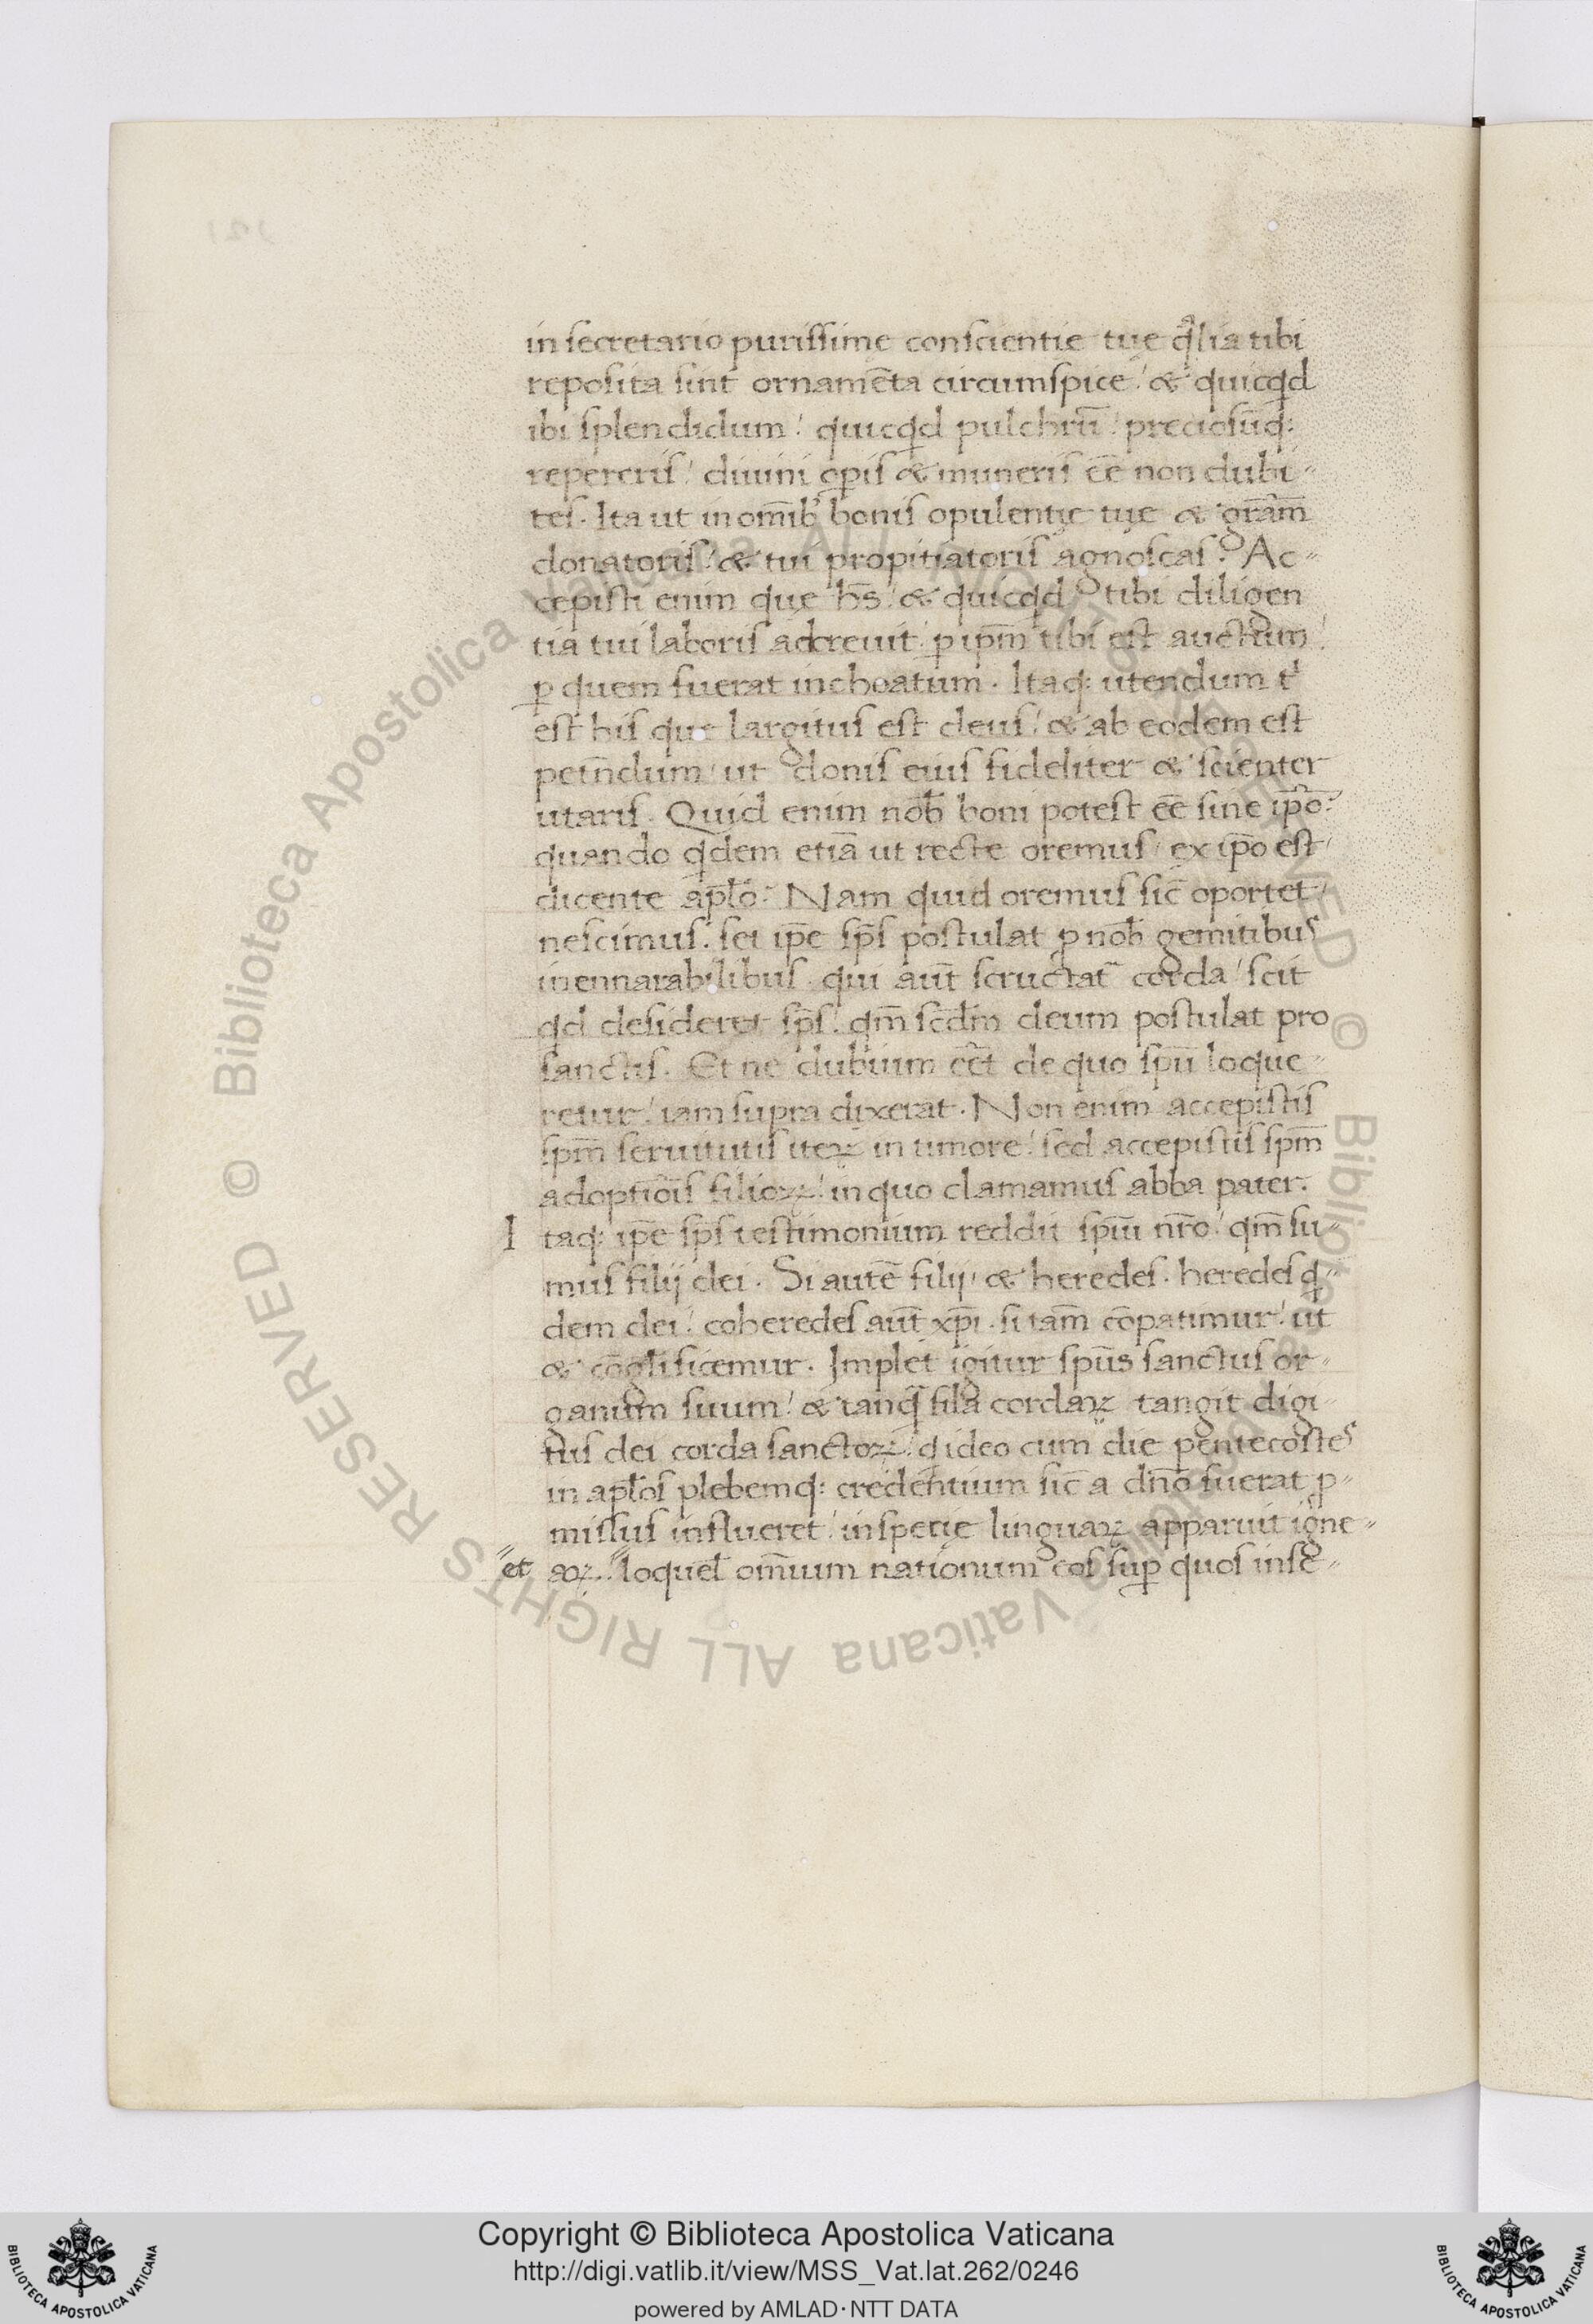 in secretario purissime conscientie tuę qͣlia tibi
reposita sint ornamēta circumspice / & quicqd
ibi splendidum / quicqd pulchrū / preciosūq:
repereris / diuini oꝑis & muneris eē non dubi-
tes. Ita ut in om̄ib' bonis opulentię tuę & grām̄
donatoris / & tui propitiatoris agnoscas. Ac-
cepisti enim que hēs / & quicqd tibi diligen
tia tui laboris adcreuit / ꝑ ipm̄ tibi est auctum /
ꝑ quem fuerat inchoatum. Itaq: utendum t'
est his que largitus est deus / & ab eodem est
petn̄dum / ut donis eius fideliter & scienter
utaris. Quid enim nob̄ boni potest eē sine ip̄o:
quando qdem etiā ut recte oremus / ex ip̄o est /
dicente apl̄o. Nam quid oremus sic̄ oportet /
nescimus. set ip̄e sp̄s postulat ꝓ nob̄ gemitibus
inennarabilibus. qui aūt scructat̄ corda / scit
qd desideret sp̄s / qm̄ scd̄m deum postulat pro
sanctis. Et ne dubium eēt de quo sp̄u loque-
retur / iam supra dixerat. Non enim accepistis
sp̄m seruitutis iteꝝ in timore / sed accepistis sp̄m
adoptiōis filioꝝ / in quo clamamus abba pater.
I taq: ip̄e sp̄s testimonium reddit sp̄ui nr̄o / qm̄ su-
mus filij dei. Si autē filij / & heredes. heredes q-
dem dei / coheredes aūt xp̄i. si tam̄ cōpatimur / ut
& cōgl̄ificemur. Implet igitur sp̄us sanctus or-
ganum suum / & tanq̄ fila cordaꝝ tangit digi-
tus dei corda sanctoꝝ / q ideo cum die pentecostes
in apl̄os plebemq: credentium sic̄ a dn̄o fuerat ꝓ-
missus influeret / in specię linguaꝝ apparuit igne-
et aꝝ. loquel̄ om̄ium nationum eos suꝑ quos inse-
Copyright © Biblioteca Apostolica Vaticana
http://digi.vatlib.it/view/MSS_Vat.lat.262/0246
powered by AMLAD·NTT DATA